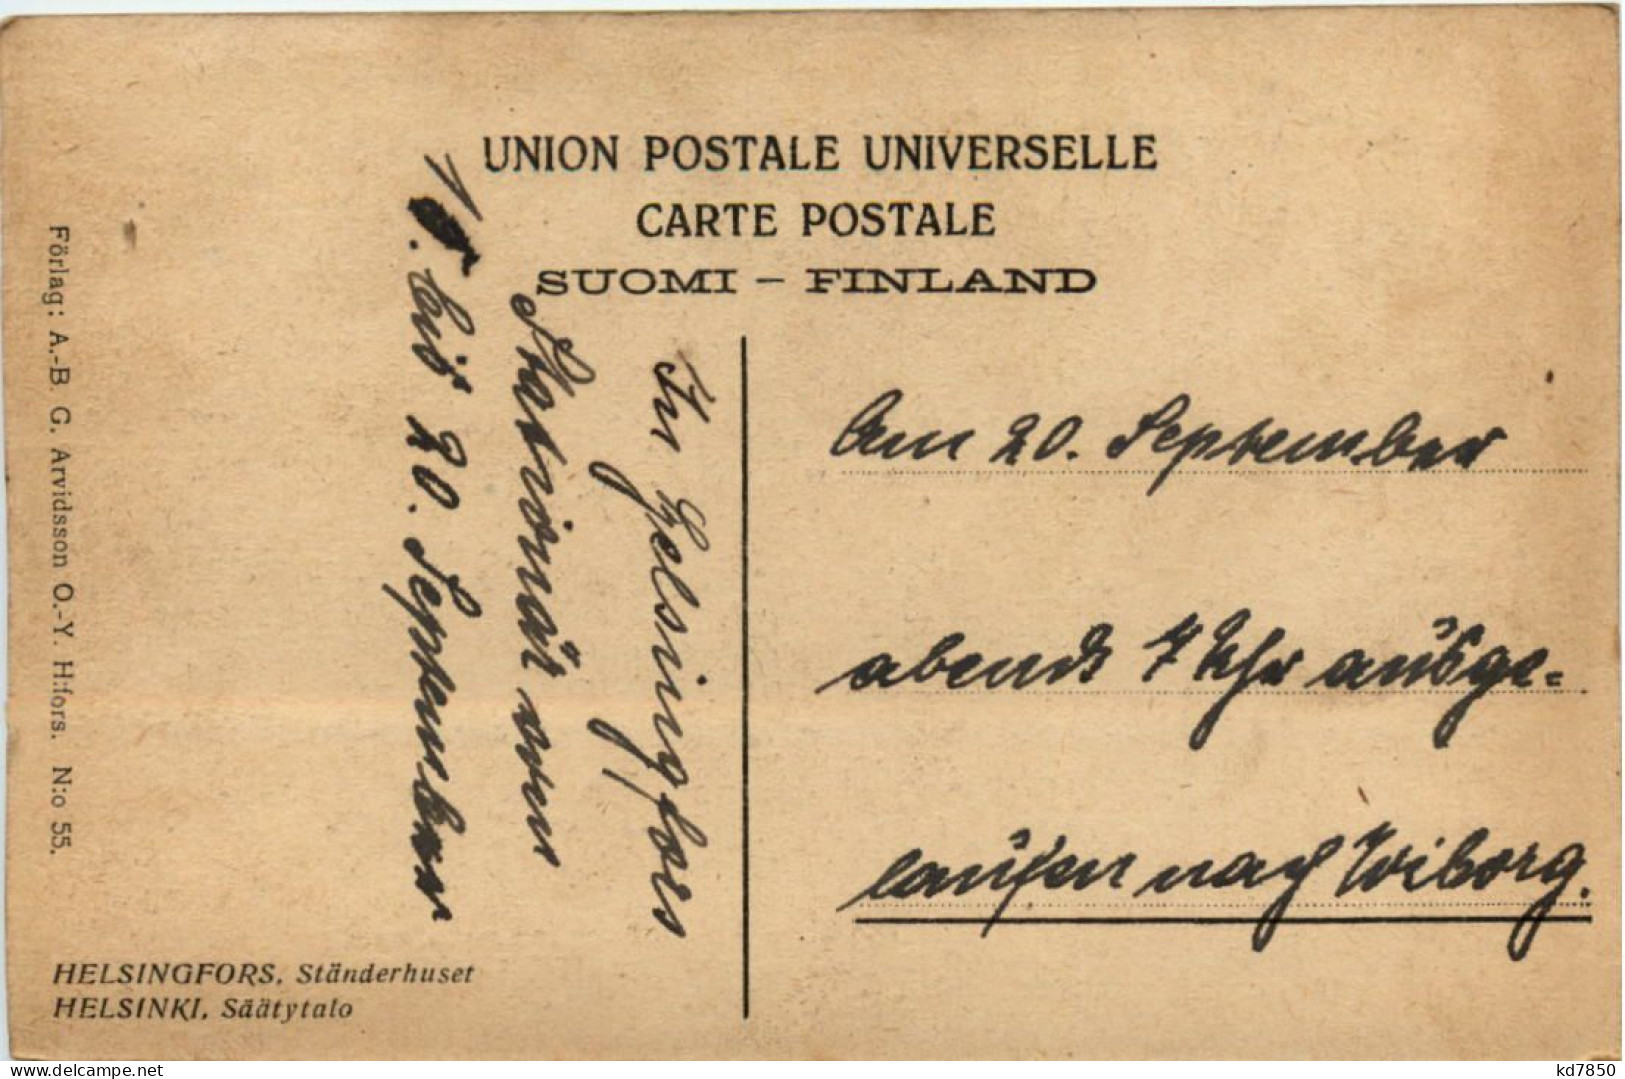 UNION POSTALE UNIVERSELLE
CARTE POSTALE
SUOMI - FINLAND
In Helsingfors
Stationär vom
16. bis 20. September
Am 20. September
abends 7 Uhr ausge=
laufen nach Wiborg.
Förlag: A.-B G. Arvidsson O.-Y. H:fors. N:o 55.
HELSINGFORS, Ständerhuset
HELSINKI, Säätytalo
www.delcampe.net
kd7850